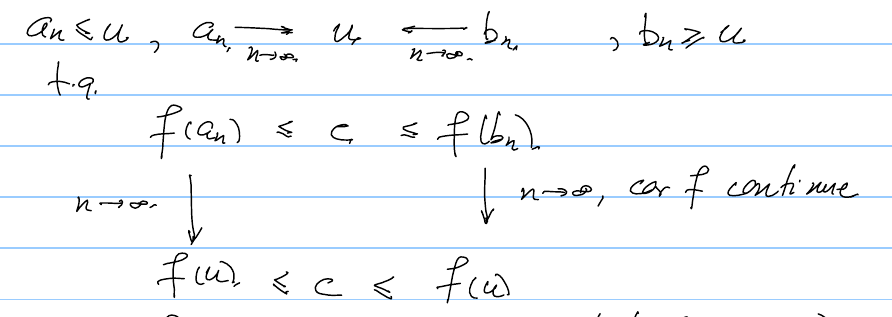 aₙ ≤ u, aₙ → u ← bₙ, bₙ ≥ u
n→∞ n→∞
t.q.
f(aₙ) ≤ c ≤ f(bₙ)
n→∞ ↓ ↓ n→∞, car f continue
f(u) ≤ c ≤ f(u)